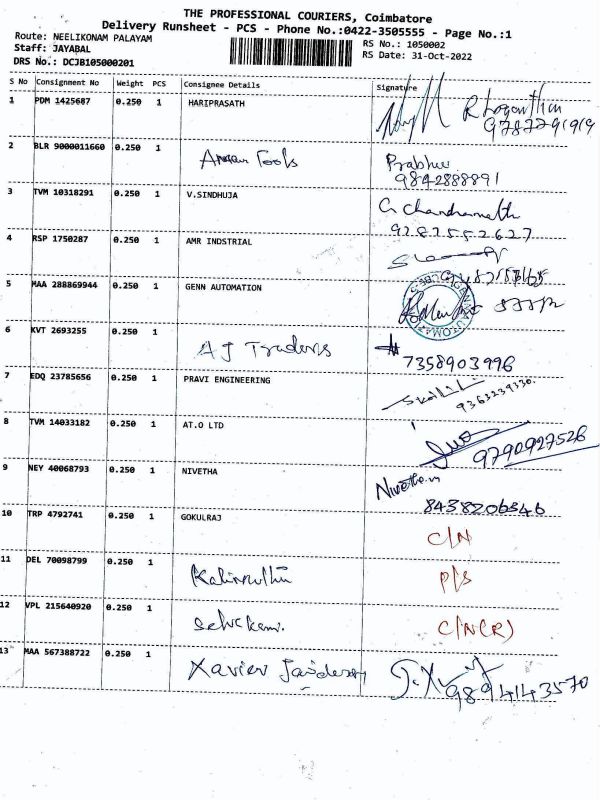 THE PROFESSIONAL COURIERS, Coimbatore
Delivery Runsheet - PCS - Phone No.:0422-3505555 - Page No.:1
Route: NEELIKONAM PALAYAM
Staff: JAYABAL
DRS No.: DCJB105000201
RS No.: 1050002
RS Date: 31-Oct-2022
S No Consignment No Weight PCS Consignee Details Signature
1 PDM 1425687 0.250 1 HARIPRASATH
9787791919
2 BLR 9000011660 0.250 1 Tools Prabhu
9842888891
3 TVM 10318291 0.250 1 V.SINDHUJA
9287552627
4 RSP 1750287 0.250 1 AMR INDSTRIAL
5 MAA 288869944 0.250 1 GENN AUTOMATION
6 KVT 2693255 0.250 1 AJ Traders
7358903996
7 EDQ 23785656 0.250 1 PRAVI ENGINEERING
9363239330.
8 TVM 14033182 0.250 1 AT.O LTD
9790927526
9 NEY 40068793 0.250 1 NIVETHA
8438206346
10 TRP 4792741 0.250 1 GOKULRAJ C/N
11 DEL 70098799 0.250 1 P/S
12 VPL 215640920 0.250 1 C/N(R)
13 MAA 567388722 0.250 1 Xavier
9894143570